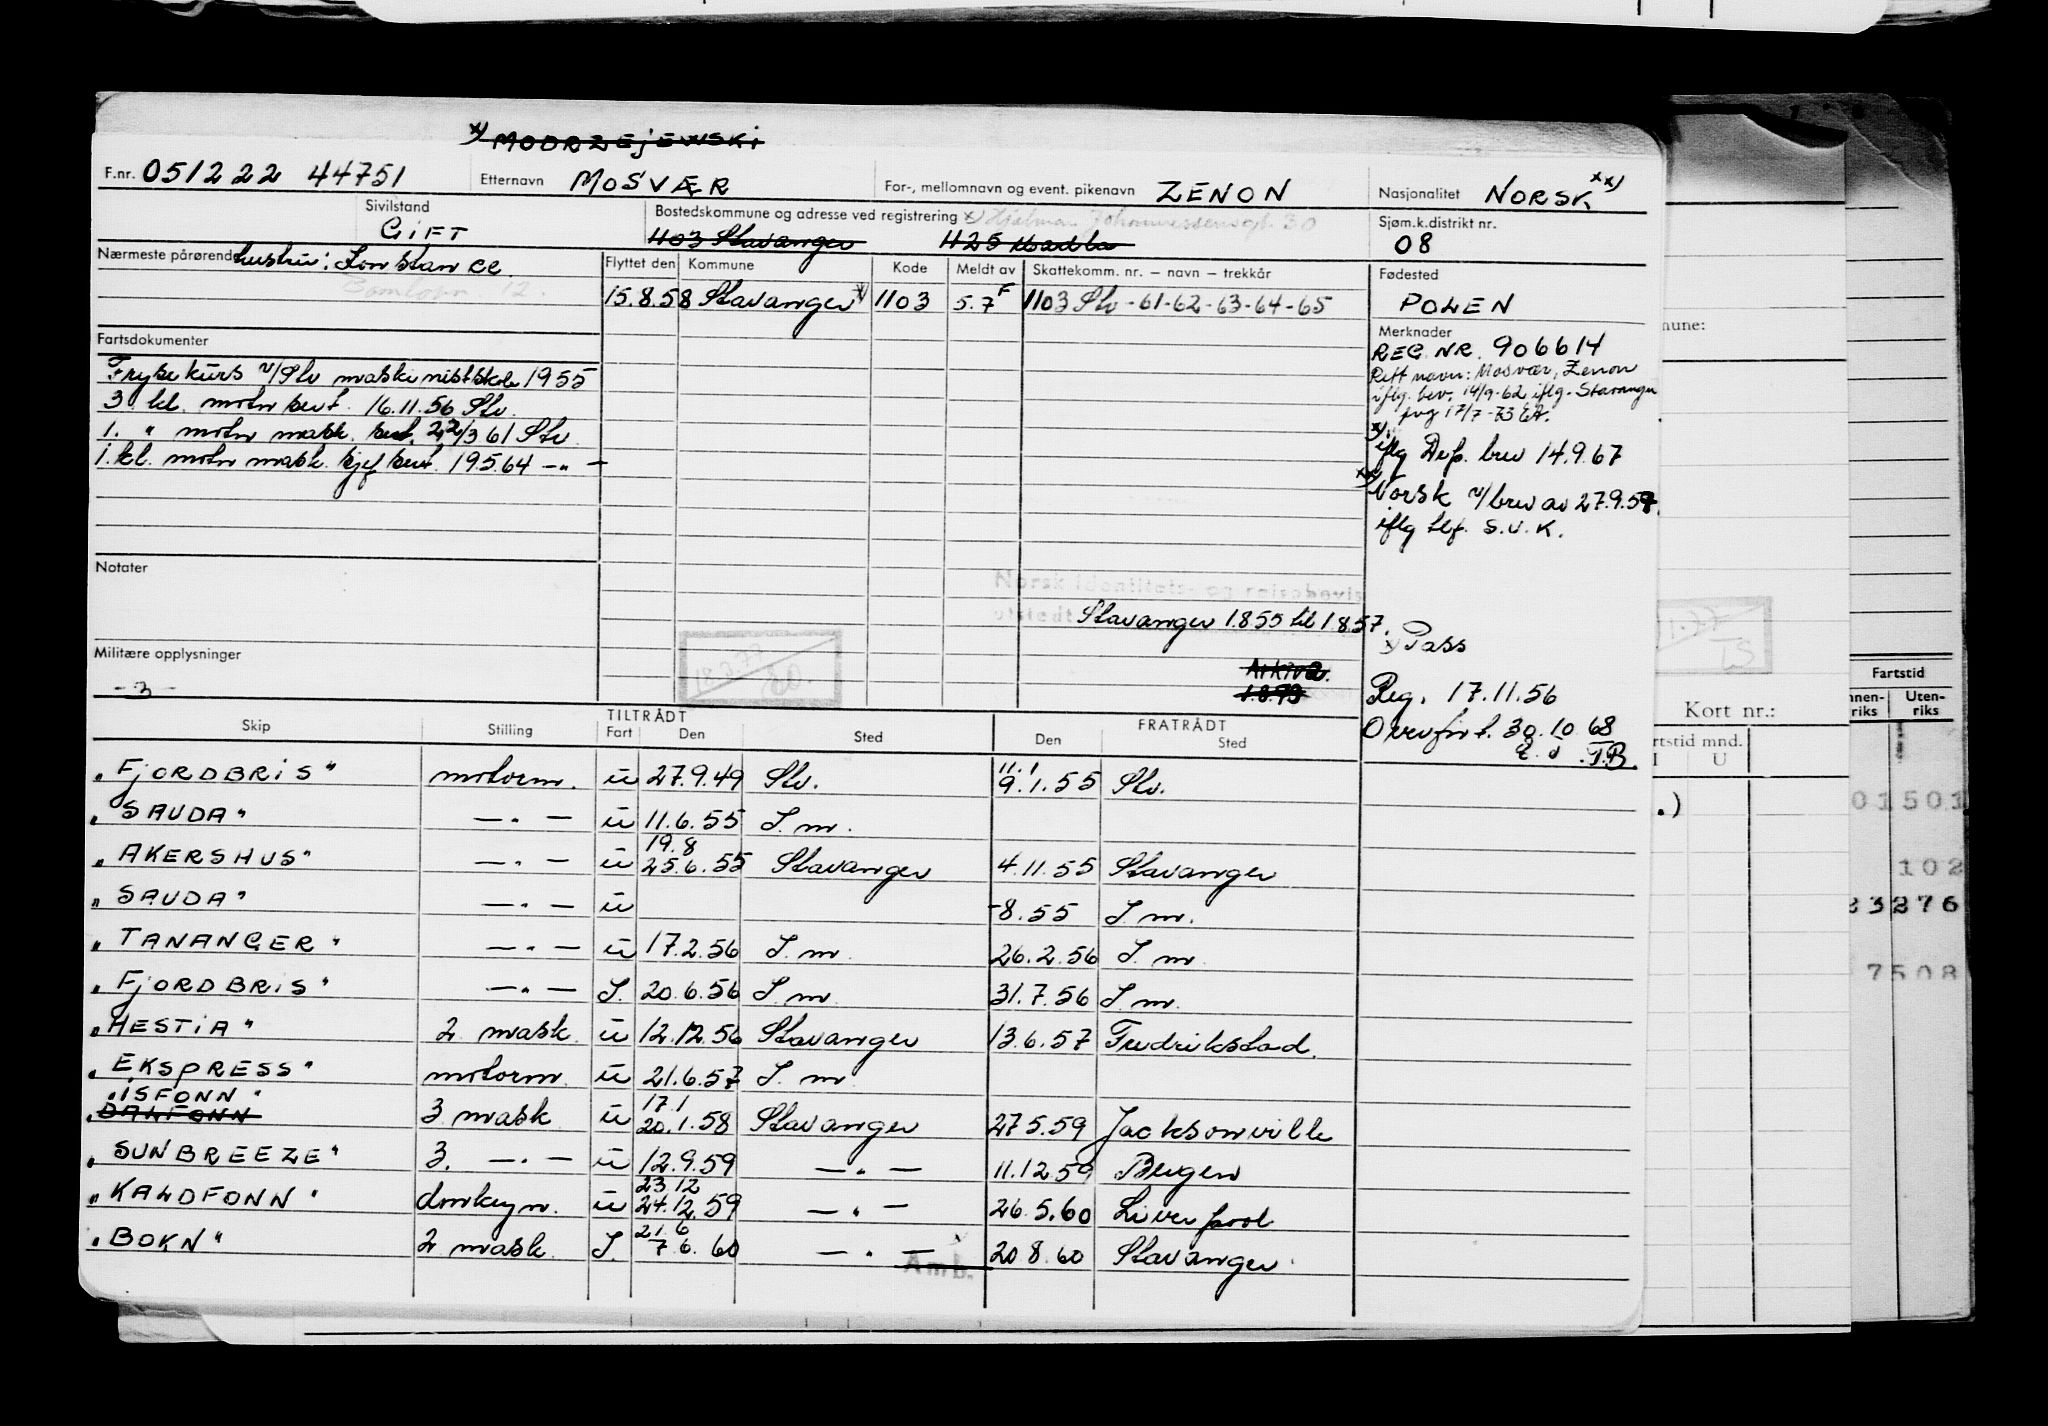 x) MODRZEJEWSKI
F.nr. 051222 44751 Etternavn MOSVÆR For-, mellomnavn og event. pikenavn ZENON Nasjonalitet NORSK xx)
Sivilstand GIFT Bostedskommune og adresse ved registrering x) Hjalmar Johannessensgt. 30 Sjøm.k.distrikt nr. 08
1103 Stavanger 1125 Madla
Nærmeste pårørende hustru: Konstance
12.
Flyttet den Kommune Kode Meldt av Skattekomm. nr. – navn – trekkår Fødested
15.8.58 Stavanger x) 1103 5.7 F 1103 Stv -61-62-63-64-65 POLEN
Fartsdokumenter
Frysekurs v/Stv maskinistskole 1955
3 kl. motor sert. 16.11.56 Stv.
1. " motor mask. sert. 22/3 61 Stv
1. kl. motor mask. sjef sert. 19.5.64 -"-
Merknader
REG. NR. 906614
Rett navn: Mosvær, Zenon
iflg. bev. 14/9-62 iflg. Stavanger
17/7-73
x) iflg Dep. brev 14.9.67
xx) Norsk v/brev av 27.9.57.
iflg tlf. S.U.K.
Notater
Norsk identitets- og reisebevis
utstedt Stavanger 1.8.55 til 1.8.57.
x) Pass
Militære opplysninger
-3-
Arkiv a.
1.8.73
Reg. 17.11.56
Overført. 30.10.68
T.B.
Skip Stilling TILTRÅDT Fart Den Sted FRATRÅDT Den Sted
"FJORDBRIS" motorm. u 27.9.49 Stv. 11.1 9.1.55 Stv.
"SAUDA" -"- u 11.6.55 S.m.
"AKERSHUS" -"- u 19.8 25.6.55 Stavanger 4.11.55 Stavanger
"SAUDA" -"- u -8.55 S.m.
"TANANGER" -"- u 17.2.56 S.m. 26.2.56 S.m.
"FJORDBRIS" -"- I. 20.6.56 S.m. 31.7.56 S.m.
"HESTIA" 2 mask. u 12.12.56 Stavanger 13.6.57 Fredrikstad.
"EKSPRESS" motorm. u 21.6.57 S.m.
"ISFONN"
"DALFONN" 3 mask u 17.1 20.1.58 Stavanger 27.5.59 Jacksonville
"SUNBREEZE" 3. -"- u 12.9.59 -"- 11.12.59 Bergen
"KALDFONN" donkeym. u 23.12 24.12.59 -"- 26.5.60 Liverpool
"BOKN" 2 mask. I. 21.6 7.6.60 -"- 20.8.60 Stavanger
Amb.
Kort nr.:
Fartstid
Uten-
riks
rtstid mnd.
I U
01501
102
23276
7508